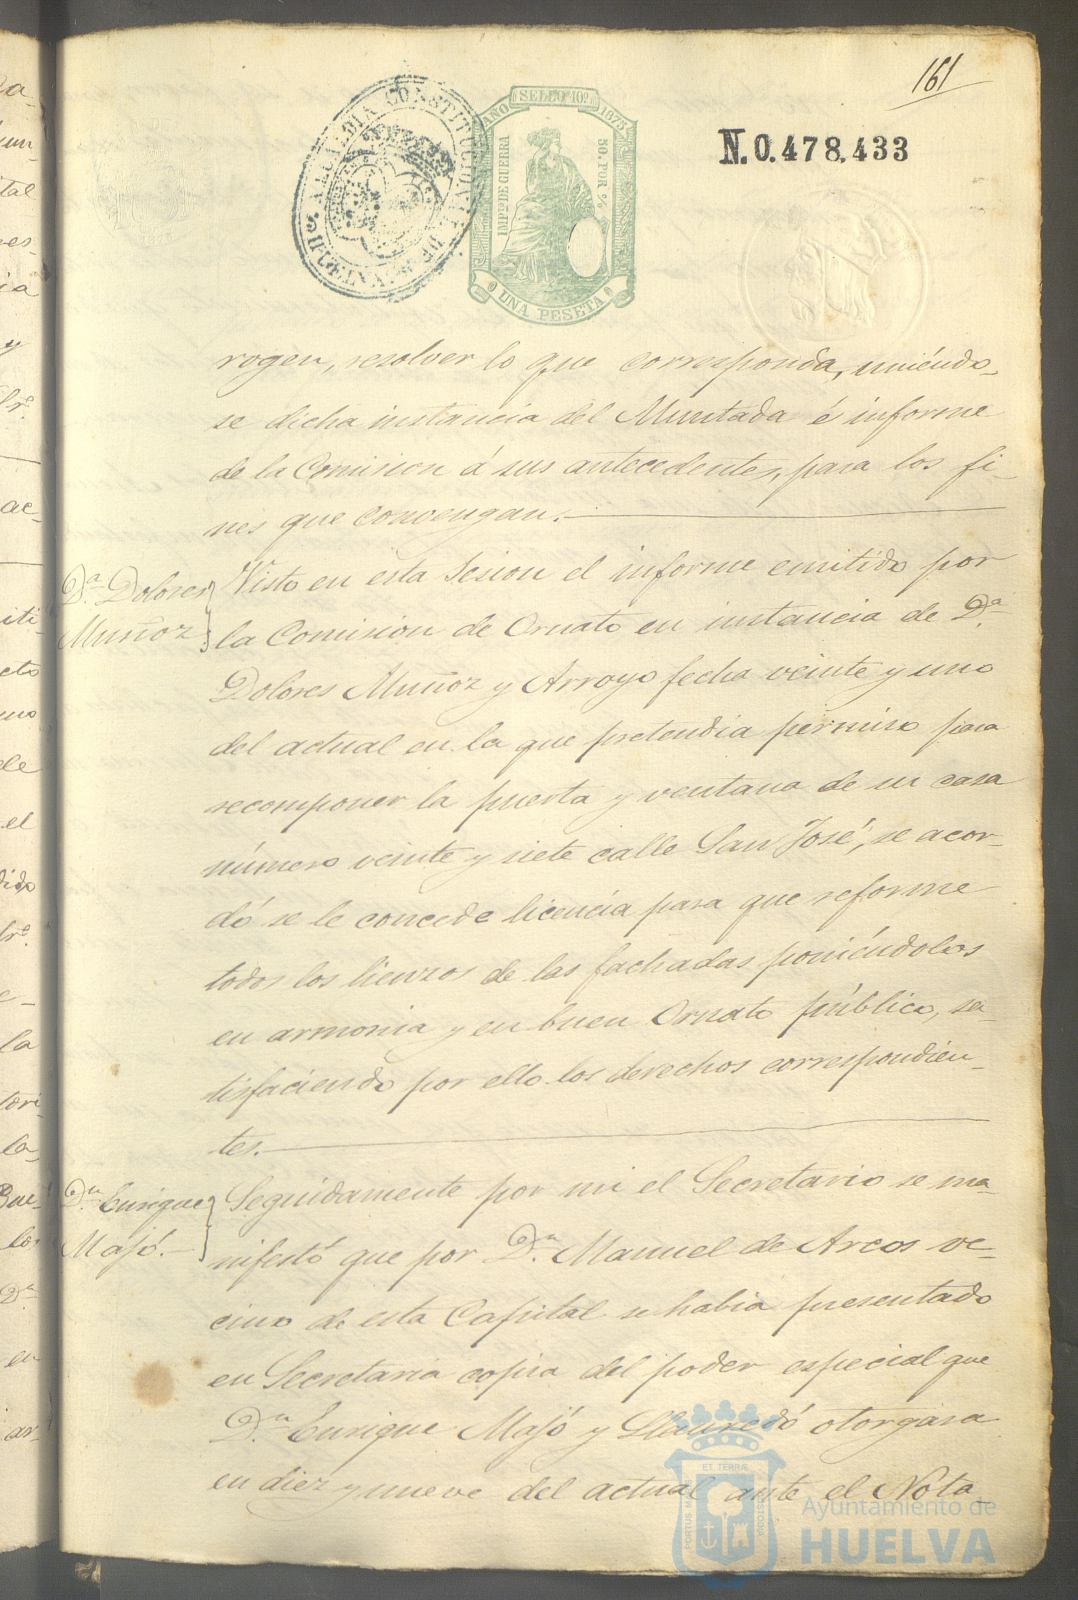 161
ALCALDIA CONSTITUCIONAL DE HUELVA
AÑO SELLO 10º 1875
IMPtº DE GUERRA
50 POR %
UNA PESETA
N.0.478.433
rogen, resolver lo que corresponda, uniéndo-
se dicha instancia del Muntada é informe
de la Comision á sus antecedentes, para los fi-
nes que convengan.
Dª Dolores
Muñoz
Visto en esta Sesion el informe emitido por
la Comision de Ornato en instancia de Dª
Dolores Muñoz y Arroyo fecha veinte y uno
del actual en la que pretendia permiso para
recomponer la puerta y ventana de su casa
número veinte y siete calle San José, se acor-
dó se le concede licencia para que reforme
todos los lienzos de las fachadas poniéndolos
en armonia y en buen Ornato público, sa-
tisfaciendo por ello los derechos correspondien-
tes.
Dn Enrique
Majó.
Seguidamente por mi el Secretario se ma-
nifestó que por Dn Manuel de Arcos ve-
cino de esta Capital se habia presentado
en Secretaria copia del poder especial que
Dn Enrique Majó y Llauredó otorgara
en diez y nueve del actual ante el Nota-
PORTUS MARIS ET TERRÆ CUSTODIA
Ayuntamiento de
HUELVA